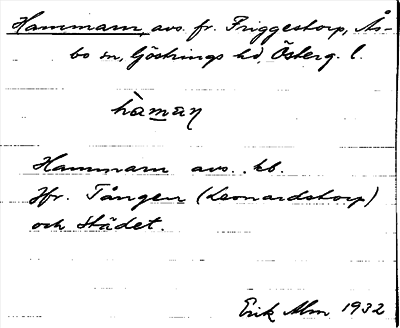 Hammarn, avs. fr. Friggestorp, Ås-
bo sn, Göstrings hd, Österg. l.
hàmaṇ
Hammarn avs. kb.
Jfr. Tången (Leonardstorp)
och Städet.
Erik Alm 1932